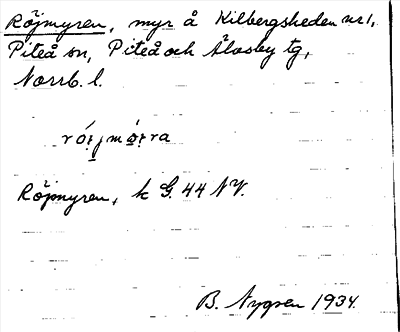 Röjmyren, myr å Kilbergsheden nr 1,
Piteå sn, Piteå och Älvsby tg,
Norrb. l.
Röjmyren, k G. 44 NV.
B. Nygren 1934